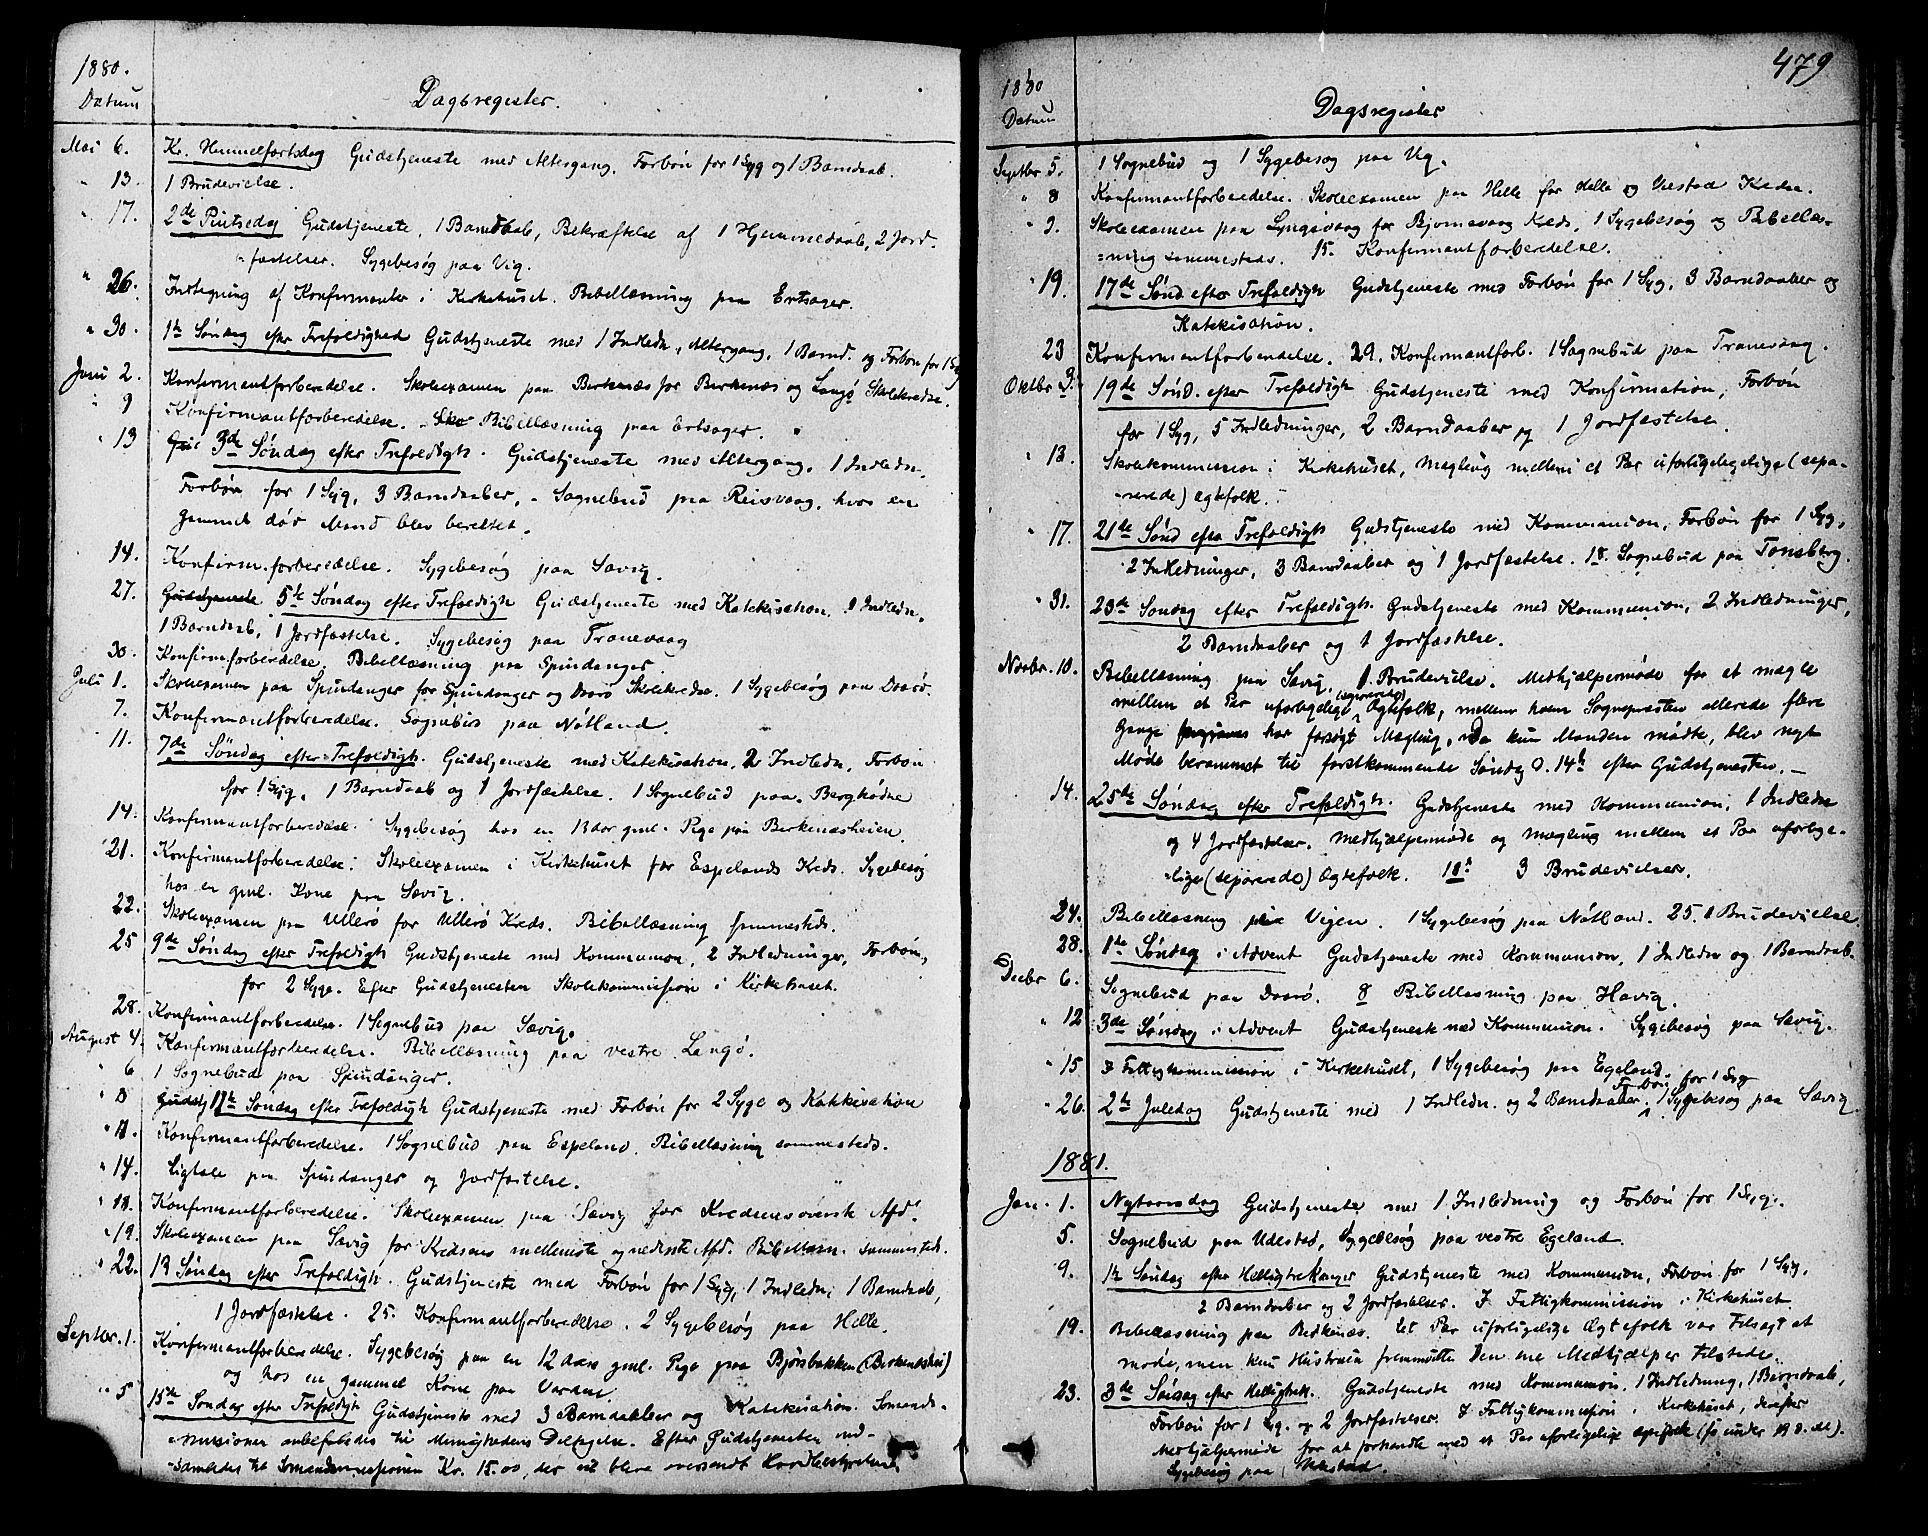 1880.
Datum
Dagsregister.
Mai 6. Kr. Himmelfartsdag Gudstjeneste med Altergang. Forbøn for 1 Syg og 1 Barndaab.
" 13. 1 Brudevielse.
" 17. 2de Pintsedag Gudstjeneste, 1 Barndaab, Bekræftelse af 1 Hjemmedaab, 2 Jord-
=fæstelser. Sygebesøg paa Vig.
" 26. Indtegning af Konfirmanter i Kirkehuset. Bibellæsning paa Ertsager.
" 30. 1te Søndag efter Trefoldighed Gudstjeneste med 1 Indledn., Altergang, 1 Barnd. og Forbøn for 1 Syg
Juni 2. Konfirmantforberedelse. Skoleexamen paa Birkenæs for Birkenæs og Langø Skolekredse.
" 9 Konfirmantforberedelse. Bibellæsning paa Ertsager.
" 13 3de Søndag efter Trefoldigh. Gudstjeneste med Altergang, 1 Indledn.
Forbøn for 1 Syg, 3 Barndaaber. Sognebud paa Reisvaag, hvor en
gammel døv Mand blev berettet.
14. Konfirm.forberedelse. Sygebesøg paa Sævig.
27. Gudstjeneste 5te Søndag efter Trefoldigh Gudstjeneste med Katekisation, 1 Indledn,
1 Barndaab, 1 Jordfæstelse. Sygebesøg paa Tranevaag
30. Konfirm.forberedelse. Bibellæsning paa Spindanger.
Juli 1. Skoleexamen paa Spindanger for Spindanger og Daarø Skolekredse. 1 Sygebesøg paa Daarø.
7. Konfirmantforberedelse. Sognebud paa Nøtland.
11. 7de Søndag efter Trefoldigh. Gudstjeneste med Katekisation, 2 Indledn, Forbøn
for 1 Syg, 1 Barndaab og 1 Jordfæstelse. 1 Sognebud paa
14. Konfirmantforberedelse. Sygebesøg hos en 13 Aar gml. Pige paa Birkenæsheien
21. Konfirmantforberedelse. Skoleexamen i Kirkehuset for Espelands Kreds. Sygebesøg
hos en gml. Kone paa Sævig.
22. Skoleexamen paa Ullerø for Ullerø Kreds. Bibellæsning sammesteds.
25 9de Søndag efter Trefoldigh Gudstjeneste med Kommunion, 2 Indledninger, Forbøn,
for 2 Syge. Efter Gudstjenesten Skolekommission i Kirkehuset.
28. Konfirmantforberedelse. 1 Sognebud paa Sævig.
August 4. Konfirmantforberedelse. Bibellæsning paa vestre Langø.
" 6 1 Sognebud paa Spindanger.
" 8 Gudstj 11te Søndag efter Trefoldigh Gudstjeneste med Forbøn for 2 Syge og Katekisation
" 11. Konfirmantforberedelse. 1 Sognebud paa Espeland. Bibellæsning sammesteds.
" 14. Ligtale paa Spindanger og Jordfæstelse.
" 18. Konfirmantforberedelse. Skoleexamen paa Sævig for Kredsens øverste Afd.
" 19. Skoleexamen paa Sævig for Kredsens mellemste og nederste Afd. Bibellæsn. sammesteds.
" 22. 13 Søndag efter Trefoldigh. Gudstjeneste med Forbøn for 1 Syg, 1 Indledn, 1 Barndaab,
1 Jordfæstelse. 25. Konfirmantforberedelse. 2 Sygebesøg paa Helle.
Septbr. 1. Konfirmantforberedelse. Sygebesøg paa en 12 Aars gml. Pige paa Bjørsbakken (Birkenæshei)
og hos en gammel Kone paa Varden
" 5 15de Søndag efter Trefoldigh Gudstjeneste med 3 Barndaaber og Katekisation. Sømands-
=missionen anbefaledes til Menighedens Deltagelse. Efter Gudstjenesten ind-
=samledes til Sømandsmissionen Kr. 15.00, der vil blive oversendt Hovedbestyrelsen
479
1880
Datum
Dagsregister
Septbr 5. 1 Sognebud og 1 Sygebesøg paa Vig.
" 8 Konfirmantforberedelse. Skoleexamen paa Helle for Helle og Krede.
" 9. Skoleexamen paa Lyngsvaag for Bjørnevaag Kreds, 1 Sygebesøg og Bibellæs-
=ning sammesteds. 15. Konfirmantforberedelse.
" 19. 17de Sønd efter Trefoldigh Gudstjeneste med Forbøn for 1 Syg, 3 Barndaaber og
Katekisation.
23 Konfirmantforberedelse. 29. Konfirmantforb. 1 Sognebud paa Tranevaag.
Oktbr 3. 19de Sønd. efter Trefoldigh Gudstjeneste med Konfirmation, Forbøn
for 1 Syg, 5 Indledninger, 2 Barndaaber og 1 Jordfæstelse.
" 13. Skolekommission i Kirkehuset, Mægling mellem et Par uforligelige (sepa-
=rerede) Ægtefolk.
" 17. 21de Sønd efter Trefoldigh Gudstjeneste med Kommunion, Forbøn for 1 Syg,
2 Indledninger, 3 Barndaaber og 1 Jordfæstelse. 18. Sognebud paa Tønsberg.
" 31. 23de Søndag efter Trefoldigh. Gudstjeneste med Kommunion, 2 Indledninger,
2 Barndaaber og 1 Jordfæstelse.
Novbr. 10. Bibellæsning paa Sævig. 1 Brudevielse. Medhjælpermøde for at mægle
mellem et Par uforligelige (separerede) Ægtefolk, mellem hvem Sognepræsten allerede flere
Gange har forsøgt Mægling. Da kun Manden mødte, blev nyt
Møde berammet til førstkommende Søndag d. 14de efter Gudstjenesten. —
14. 25de Søndag efter Trefoldigh. Gudstjeneste med Kommunion, 1 Indledn
og 4 Jordfæstelser. Medhjælpermøde og Mægling mellem et Par uforlige-
=lige (separerede) Ægtefolk. 18de 3 Brudevielser.
24. Bibellæsning paa Vigen. 1 Sygebesøg paa Nøtland. 25. 1 Brudevielse
28. 1ste Søndag i Advent Gudstjeneste med Kommunion, 1 Indledn og 1 Barndaab.
Decbr 6. Sognebud paa Daarø. 8 Bibellæsning paa Havig.
" 12 3de Søndag i Advent Gudstjeneste med Kommunion. Sygebesøg paa Sævig.
" 15 Fattigkommission i Kirkehuset, 1 Sygebesøg paa Egeland.
" 26. 2de Juledag Gudstjeneste med 1 Indledn. og 2 Barndaaber, Forbøn for 1 Syg 1 Sygebesøg paa Sævig
1881.
Jan. 1. Nytaarsdag Gudstjeneste med 1 Indledning og Forbøn for 1 Syg.
5. Sognebud paa Udestad, Sygebesøg paa vestre Egeland.
9. 1ste Søndag efter Helligtrekonger Gudstjeneste med Kommunion, Forbøn for 1 Syg,
2 Barndaaber og 2 Jordfæstelser. I Fattigkommission i Kirkehuset
19. Bibellæsning paa Birkenæs. Et Par uforligelige Ægtefolk var tilsagt at
møde, men kun Hustruen fremmødte. Den ene Medhjælper tilstede.
23. 3de Søndag efter Helligtrek. Gudstjeneste med Kommunion, 1 Indledning, 1 Barndaab,
Forbøn for 1 Syg og 2 Jordfæstelser. I Fattigkommission i Kirkehuset, derefter
Medhjælpermøde for at forhandle med et Par uforligelige Ægtefolk (se under 19 d. M.).
Sygebesøg paa Udestad.